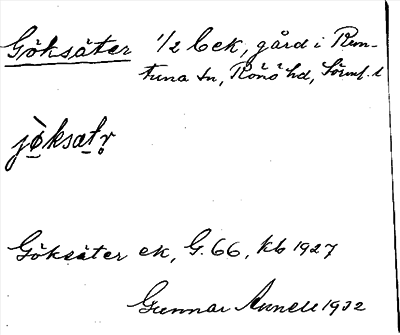 Göksäter 1/2 Cek, gård i Run-
tuna sn, Rönö hd, Sörml. l
jö̀ksạtr̥
Göksäter ek, G. 66, kb 1927
Gunnar Arnell 1932